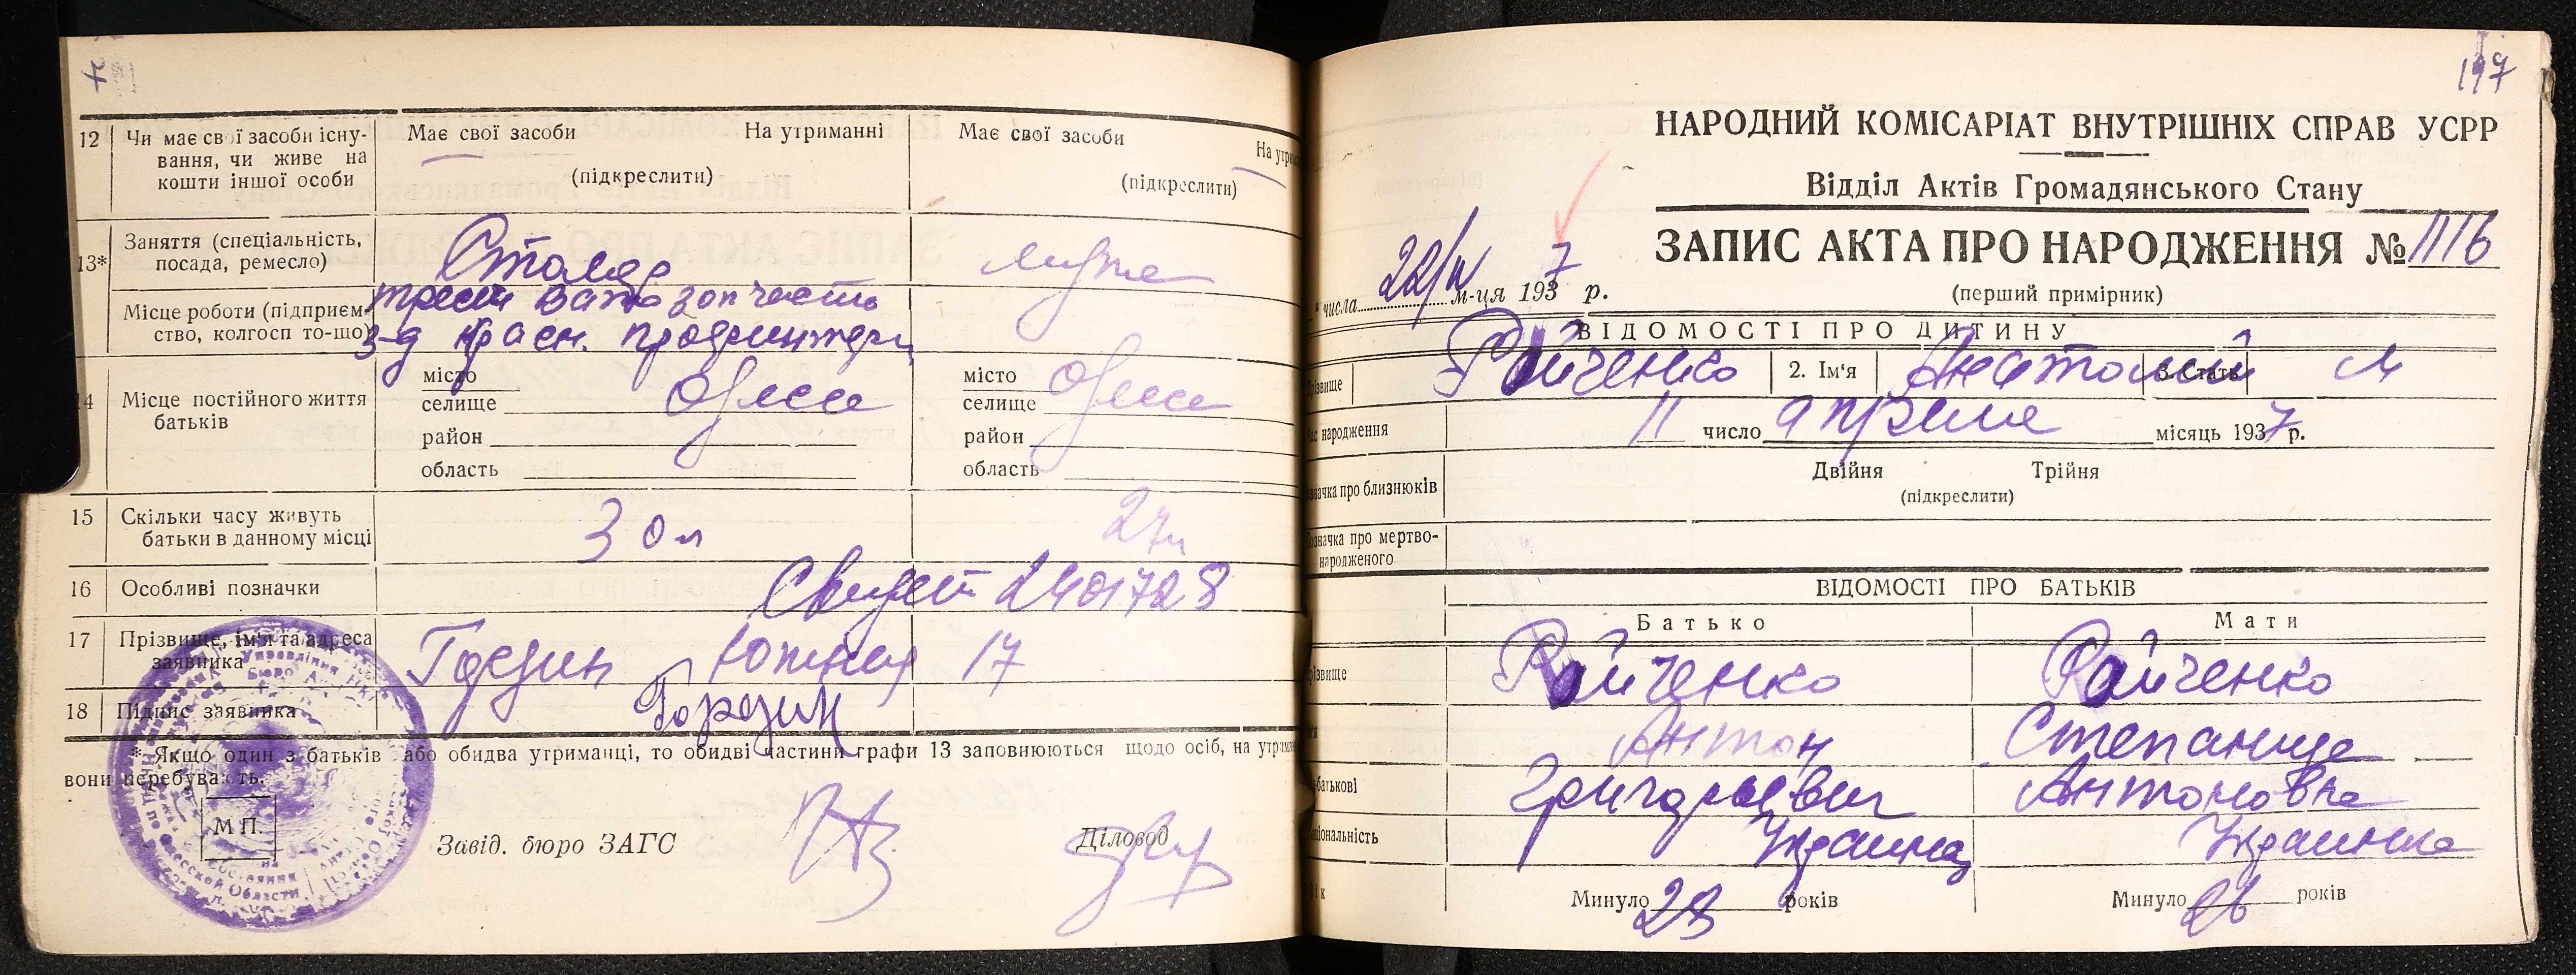 12 Чи має свої засоби існу-
вання, чи живе на
кошти іншої особи
Має свої засоби На утриманні
(підкреслити)
Має свої засоби
(підкреслити)
13* Заняття (спеціальність,
посада, ремесло)
Столяр
Місце роботи (підприєм-
ство, колгосп то-що)
трест
з-д Красн. Профинтерн
14 Місце постійного життя
батьків
місто
селище Одесса
район
область
місто
селище Одесса
район
область
15 Скільки часу живуть
батьки в данному місці
30 л 27 л
16 Особливі позначки
2401728
17 Прізвище, ім'я та адреса
заявника
Южная 17
18 Підпис заявника
* Якщо один з батьків або обидва утриманці, то обидві частини графи 13 заповнюються щодо осіб, на
вони перебувають.
М П.
Завід. бюро ЗАГС Діловод
197
НАРОДНИЙ КОМІСАРІАТ ВНУТРІШНІХ СПРАВ УСРР
Відділ Актів Громадянського Стану
ЗАПИС АКТА ПРО НАРОДЖЕННЯ № 1116
числа 22/IV м-ця 1937 р.
(перший примірник)
ВІДОМОСТІ ПРО ДИТИНУ
Райченко 2. Ім'я Анатолий 3. Стать М
народження 11 число апреля місяць 1937 р.
про близнюків
Двійня Трійня
(підкреслити)
про мертво-
народженого
ВІДОМОСТІ ПРО БАТЬКІВ
Батько Мати
Райченко Райченко
Антон Степанида
Григорьевич Антоновна
Украинец Украинка
Минуло 29 років Минуло 26 років